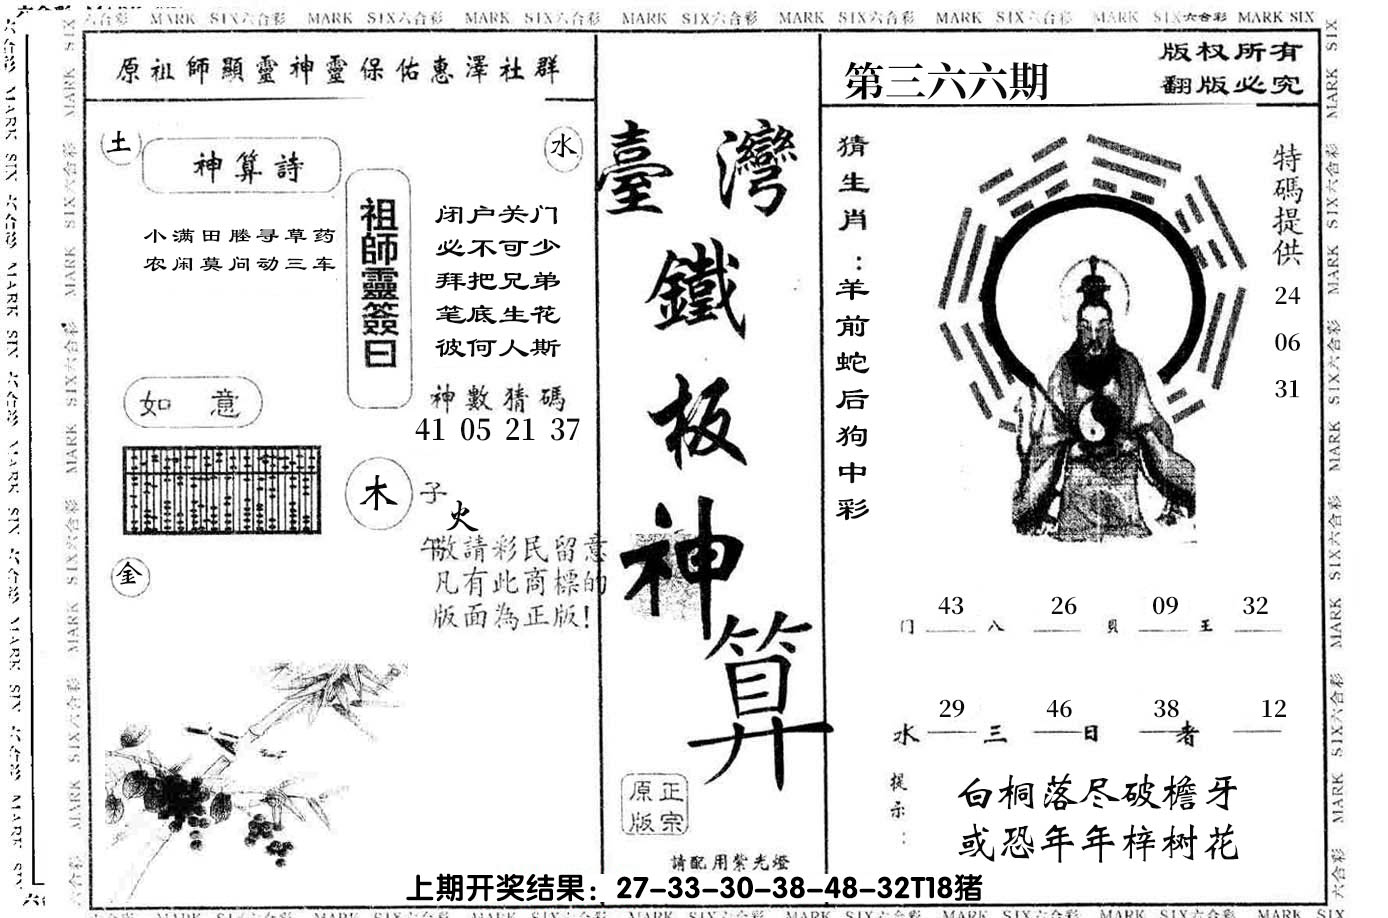 MARK SIX六合彩 MARK SIX六合彩 MARK SIX六合彩 MARK SIX六合彩 MARK SIX六合彩 MARK SIX六合彩 MARK SIX六合彩 MARK SIX
原祖師顯靈神靈保佑惠澤社群
土
神算詩
水
小满田塍寻草药
农闲莫问动三车
祖師靈簽曰
闭户关门
必不可少
拜把兄弟
笔底生花
彼何人斯
神數猜碼
41 05 21 37
如意
木
子
火
午
金
敬請彩民留意
凡有此商標的
版面為正版!
臺灣
鐵
板
神
算
正宗
原版
請配用紫光燈
第三六六期
版权所有
翻版必究
猜生肖：羊前蛇后狗中彩
特碼提供
24
06
31
43 26 09 32
门 八 貝 王
29 46 38 12
水 三 日 者
提示：
白桐落尽破檐牙
或恐年年梓树花
上期开奖结果：27-33-30-38-48-32T18猪